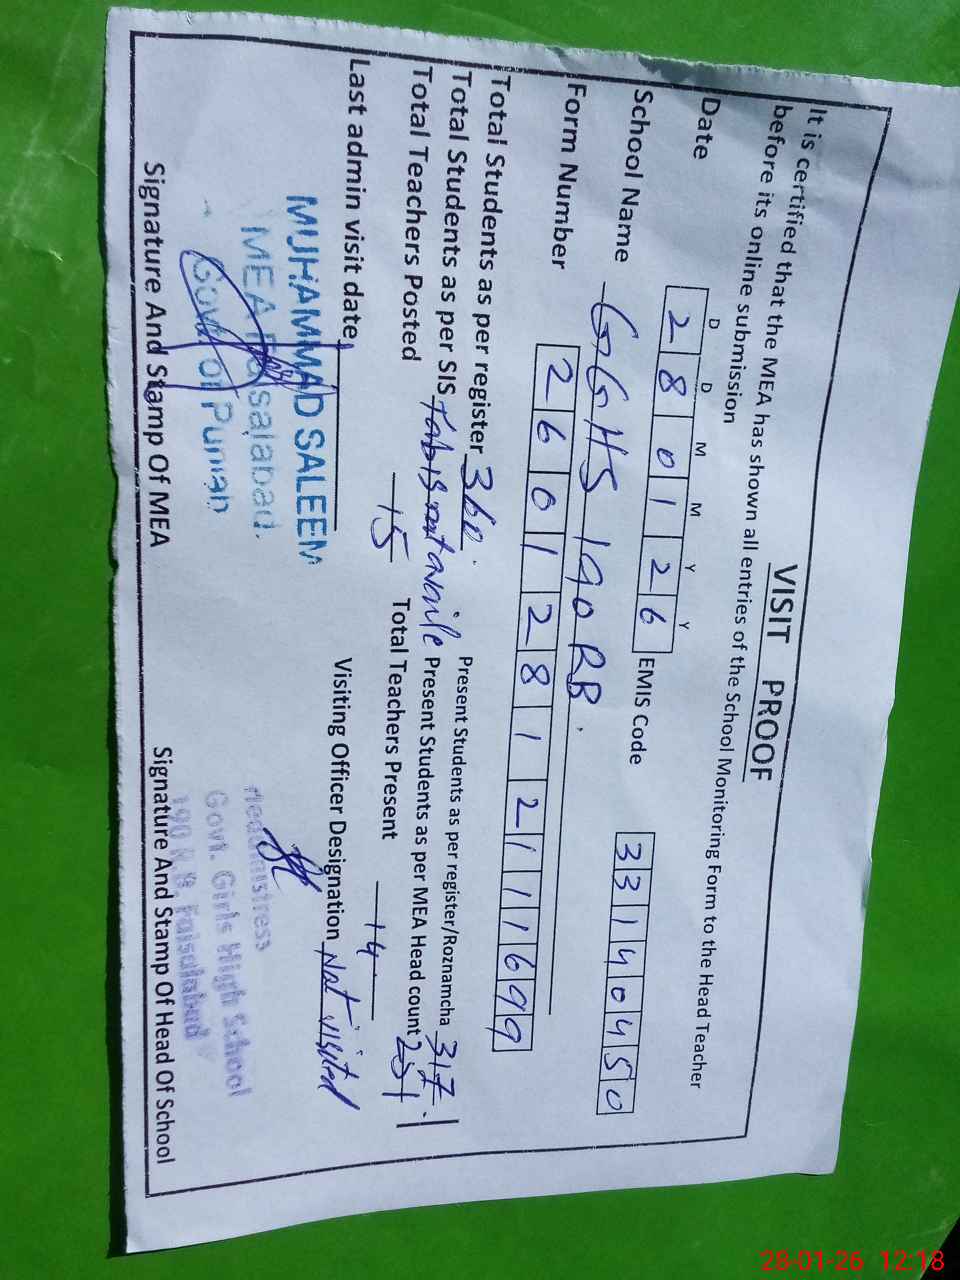 VISIT PROOF
It is certified that the MEA has shown all entries of the School Monitoring Form to the Head Teacher
before its online submission
D D M M Y Y
Date 2 8 0 1 2 6 EMIS Code 3 3 1 4 0 4 5 0
School Name GGHS 190 RB.
Form Number 2 6 0 1 2 8 1 2 1 1 1 6 9 9
Total Students as per register 360. Present Students as per register/Roznamcha 317.
Total Students as per SIS Tab is not availe Present Students as per MEA Head count 251
Total Teachers Posted 15 Total Teachers Present 14
Last admin visit date Visiting Officer Designation Not visited
MUHAMMAD SALEEM
MEA Faisalabad.
Govt of Punjab
Headmistress
Govt. Girls High School
190 R.B. Faisalabad
Signature And Stamp Of MEA Signature And Stamp Of Head Of School
28-01-26 12:18